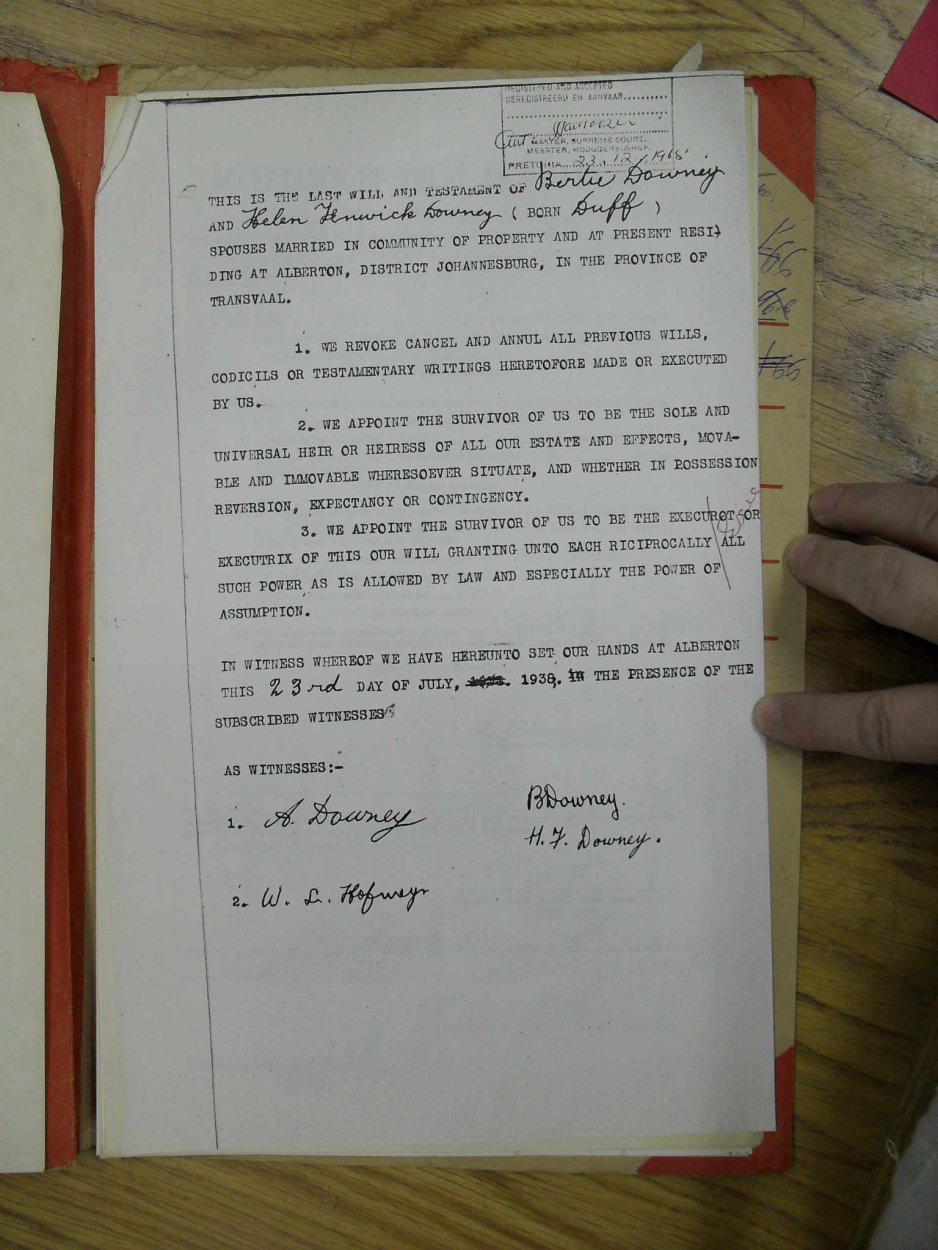 REGISTERED AND ACCEPTED
GEREGISTREERD EN AANVAAR..........
MASTER, SUPREME COURT.
MEESTER, HOOGGEREGSHOF.
PRETORIA...23.12.1965
THIS IS THE LAST WILL AND TESTAMENT OF Bertie Downey
AND Helen Fenwick Downey ( BORN Duff )
SPOUSES MARRIED IN COMMUNITY OF PROPERTY AND AT PRESENT RESI-
DING AT ALBERTON, DISTRICT JOHANNESBURG, IN THE PROVINCE OF
TRANSVAAL.
1. WE REVOKE CANCEL AND ANNUL ALL PREVIOUS WILLS,
CODICILS OR TESTAMENTARY WRITINGS HERETOFORE MADE OR EXECUTED
BY US.
2. WE APPOINT THE SURVIVOR OF US TO BE THE SOLE AND
UNIVERSAL HEIR OR HEIRESS OF ALL OUR ESTATE AND EFFECTS, MOVA-
BLE AND IMMOVABLE WHERESOEVER SITUATE, AND WHETHER IN POSSESSION
REVERSION, EXPECTANCY OR CONTINGENCY.
3. WE APPOINT THE SURVIVOR OF US TO BE THE EXECUROT OR
EXECUTRIX OF THIS OUR WILL GRANTING UNTO EACH RICIPROCALLY ALL
SUCH POWER AS IS ALLOWED BY LAW AND ESPECIALLY THE POWER OF
ASSUMPTION.
IN WITNESS WHEREOF WE HAVE HEREUNTO SET OUR HANDS AT ALBERTON
THIS 23rd DAY OF JULY, 1938. IN THE PRESENCE OF THE
SUBSCRIBED WITNESSES
AS WITNESSES:-
BDowney.
1. A. Downey
H. F. Downey.
2. W. L. Hofmeyr